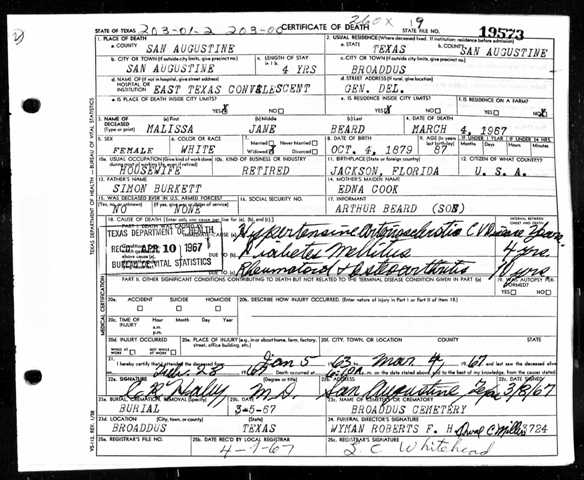 STATE OF TEXAS 203-01-2 203-00 CERTIFICATE OF DEATH STATE FILE NO. 19573
1. PLACE OF DEATH
a. COUNTY
SAN AUGUSTINE
2. USUAL RESIDENCE (Where deceased lived. If institution: residence before admission)
a. STATE TEXAS b. COUNTY SAN AUGUSTINE
b. CITY OR TOWN (If outside city limits, give precinct no.)
SAN AUGUSTINE
c. LENGTH OF STAY
4 YRS
c. CITY OR TOWN (If outside city limits, give precinct no.)
BROADDUS
d. NAME OF (If not in hospital, give street address)
HOSPITAL OR INSTITUTION EAST TEXAS CONVALESCENT
d. STREET ADDRESS (If rural, give location)
GEN. DEL.
e. IS PLACE OF DEATH INSIDE CITY LIMITS?
YES NO
e. IS RESIDENCE INSIDE CITY LIMITS?
YES NO
f. IS RESIDENCE ON A FARM?
YES NO
3. NAME OF DECEASED (Type or print)
(a) First (b) Middle (c) Last
MALISSA JANE BEARD
4. DATE OF DEATH
MARCH 4, 1967
5. SEX
FEMALE
6. COLOR OR RACE
WHITE
7. Married Never Married
Widowed Divorced
8. DATE OF BIRTH
OCT. 4, 1879
9. AGE
87
IF UNDER 1 YEAR
IF UNDER 24 HRS.
Months Days Hours Min.
10a. USUAL OCCUPATION (Give kind of work done
HOUSEWIFE
10b. KIND OF BUSINESS OR INDUSTRY
RETIRED
11. BIRTHPLACE (State or foreign country)
JACKSON, FLORIDA
12. CITIZEN OF WHAT COUNTRY?
U. S. A.
13. FATHER'S NAME
SIMON BURKETT
14. MOTHER'S MAIDEN NAME
EDNA COOK
15. WAS DECEASED EVER IN U.S. ARMED FORCES?
NO NONE
16. SOCIAL SECURITY NO.
17. INFORMANT
ARTHUR BEARD (SON)
18. CAUSE OF DEATH
TEXAS DEPARTMENT OF HEALTH
REC'D APR 10 1967
BUREAU OF VITAL STATISTICS
Hypertensive Arteriosclerotic C V Disease Years
DUE TO Diabetes Mellitus 4 yrs.
DUE TO Rheumatoid & Osteoarthritis
PART II. OTHER SIGNIFICANT CONDITIONS CONTRIBUTING TO DEATH BUT NOT RELATED TO THE TERMINAL DISEASE CONDITION GIVEN IN PART I(a)
19. WAS AUTOPSY PERFORMED?
YES NO
20a. ACCIDENT SUICIDE HOMICIDE
20b. DESCRIBE HOW INJURY OCCURRED. (Enter nature of injury in Part I or Part II of item 18)
20c. TIME OF INJURY
Hour Month Day Year
a.m.
p.m.
20d. INJURY OCCURRED
WHILE AT WORK NOT WHILE AT WORK
20e. PLACE OF INJURY (e.g., in or about home, farm, factory, street, office building, etc.)
20f. CITY, TOWN, OR LOCATION COUNTY STATE
21. I hereby certify that I attended the deceased from Jan 5 63 Mar 4 67 and last saw the deceased alive
on Feb. 28 1967. Death occurred at m. on the date stated above, and to the best of my knowledge, from the causes stated.
22a. SIGNATURE (Degree or title)
M. D.
22b. ADDRESS
San Augustine
22c. DATE SIGNED
3/8/67
23a. BURIAL, CREMATION, REMOVAL (Specify)
BURIAL
23b. DATE
3-5-67
23c. NAME OF CEMETERY OR CREMATORY
BROADDUS CEMETERY
23d. LOCATION (City, town, or county) (State)
BROADDUS TEXAS
24. FUNERAL DIRECTOR'S SIGNATURE
WYMAN ROBERTS F. H. 3724
25a. REGISTRAR'S FILE NO.
25b. DATE REC'D BY LOCAL REGISTRAR
4-7-67
25c. REGISTRAR'S SIGNATURE
S C Whitehead
TEXAS DEPARTMENT OF HEALTH — BUREAU OF VITAL STATISTICS
MEDICAL CERTIFICATION